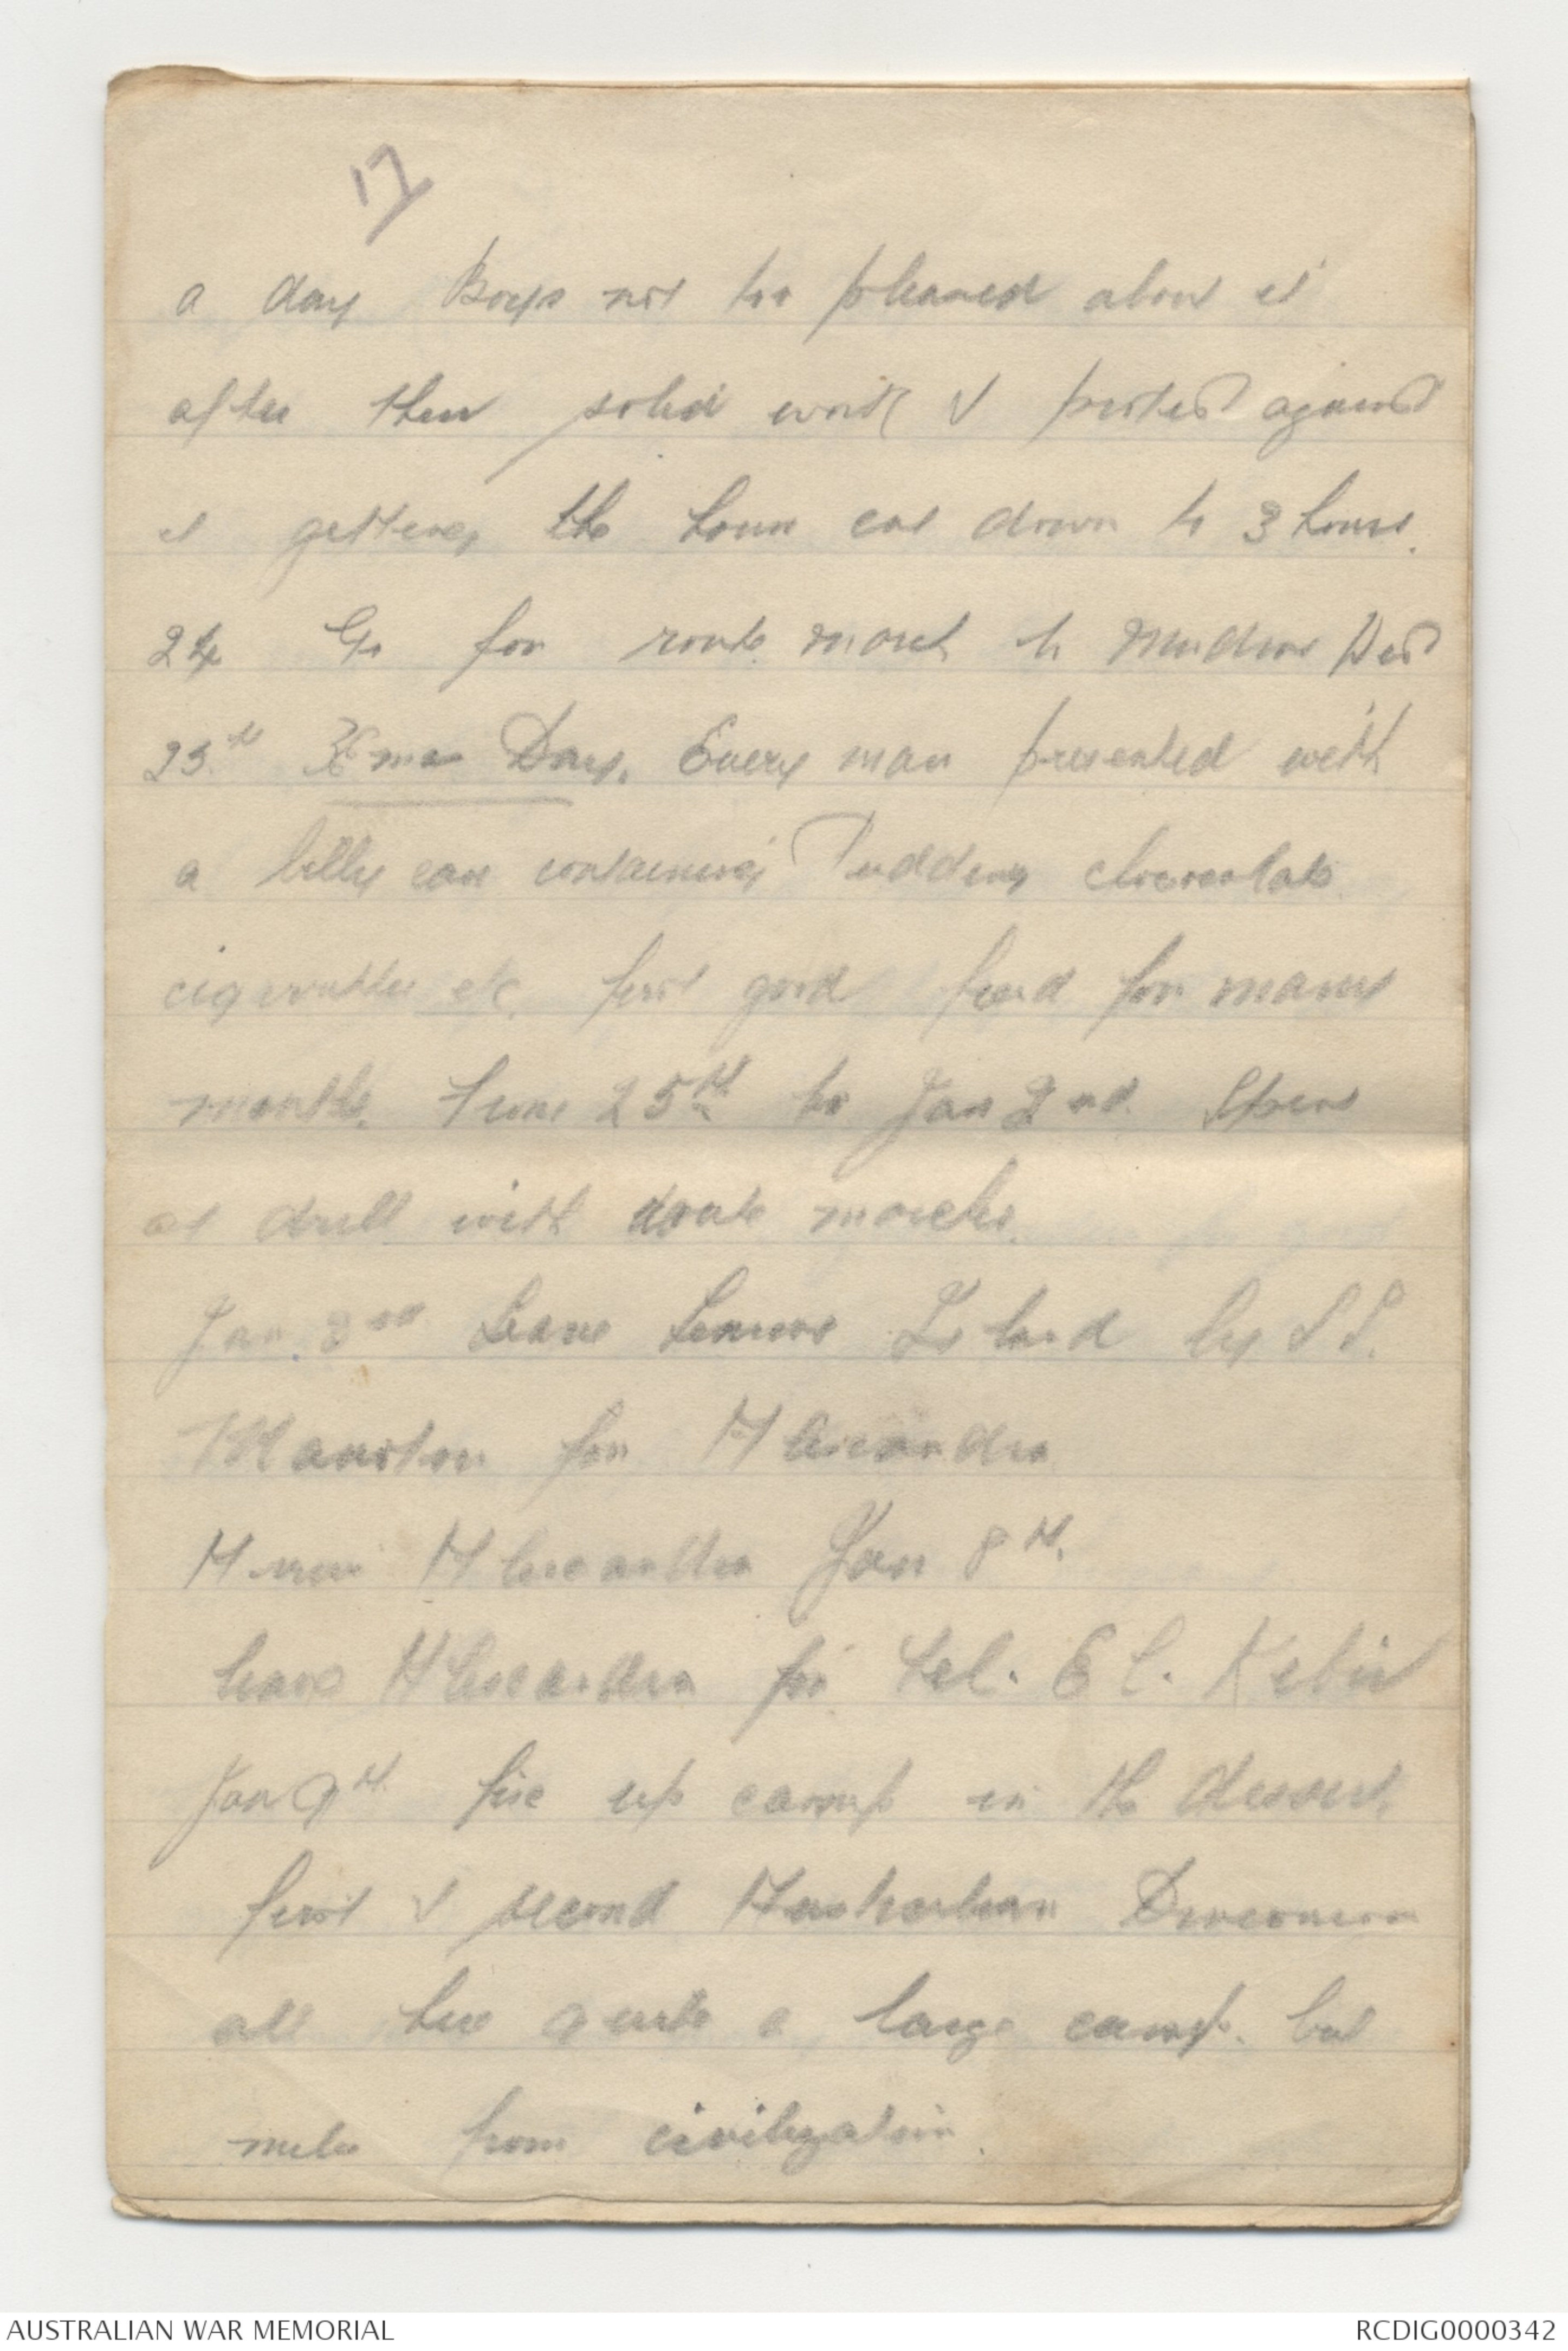 17
a day Boys not too pleased about it
after their solid work & protest against
it getting the hours cut down to 3 hours.
24 Go for route march to Mudros West
25th Xmas Day. Every man presented with
a billy can containing Pudding chocolate
cigerattes etc. first good feed for many
months. From 25th to Jan 2nd. Spent
at drill with route marches.
Jan. 3rd Leave Lemnos Island by S S.
for Alexandra
Arrive Alexandra Jan 8th.
leave Alexandra for Tel. El. Kebir
Jan 9th fix up camp in the dessert,
first & second Australian Divisions
all here quite a large camp. but
miles from civilization.
AUSTRALIAN WAR MEMORIAL
RCDIG0000342